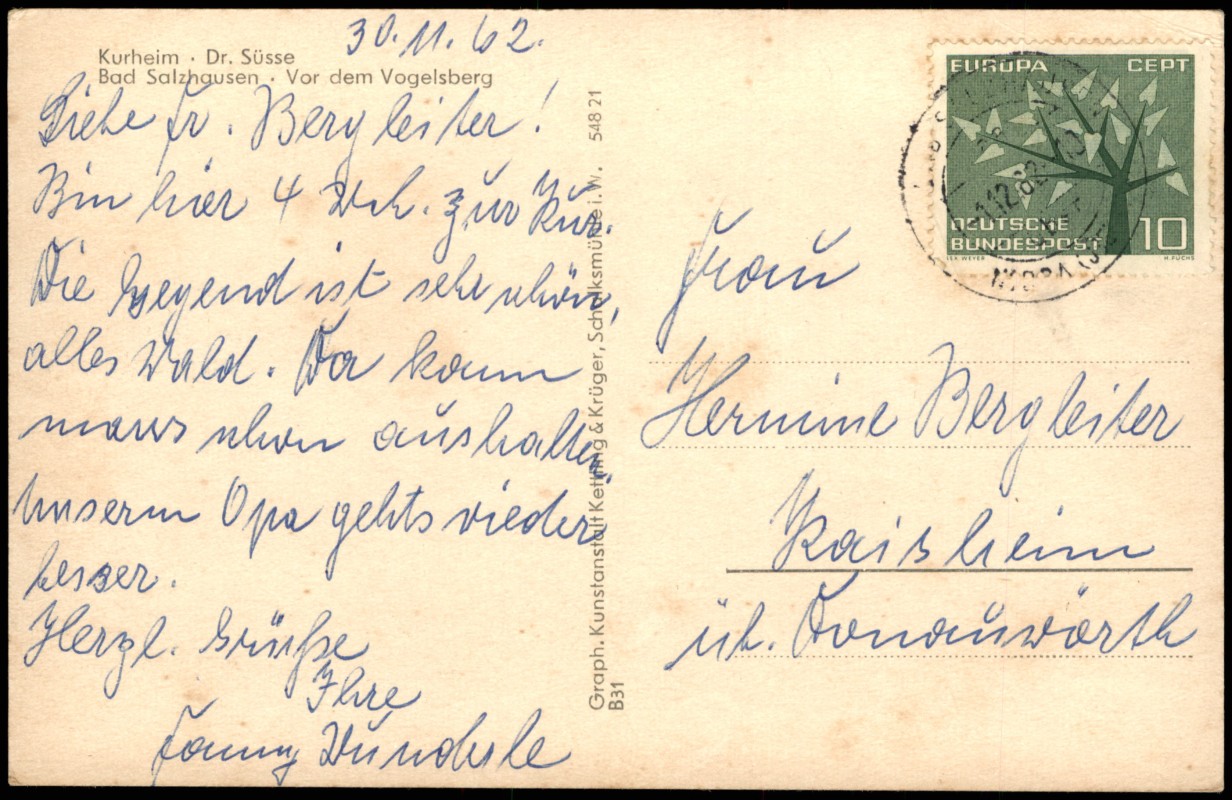 30.11.62.
Kurheim · Dr. Süsse
Bad Salzhausen · Vor dem Vogelsberg
Liebe Fr. Bergleiter!
Bin hier 4 Wch. zur Kur.
Die Gegend ist sehr schön,
alles Wald. Da kann
mans schon aushalten.
Unserm Opa gehts wieder
besser.
Herzl. Grüße
Ihre
Fanny Wunderle
Graph. Kunstanstalt Kettling & Krüger, Schalksmühle i. W. 548 21
B31
EUROPA CEPT
DEUTSCHE
BUNDESPOST 10
LEX WEYER H. FUCHS
-1.12.62.-10
NIDDA
Frau
Hermine Bergleiter
Kaisheim
üb. Donauwörth